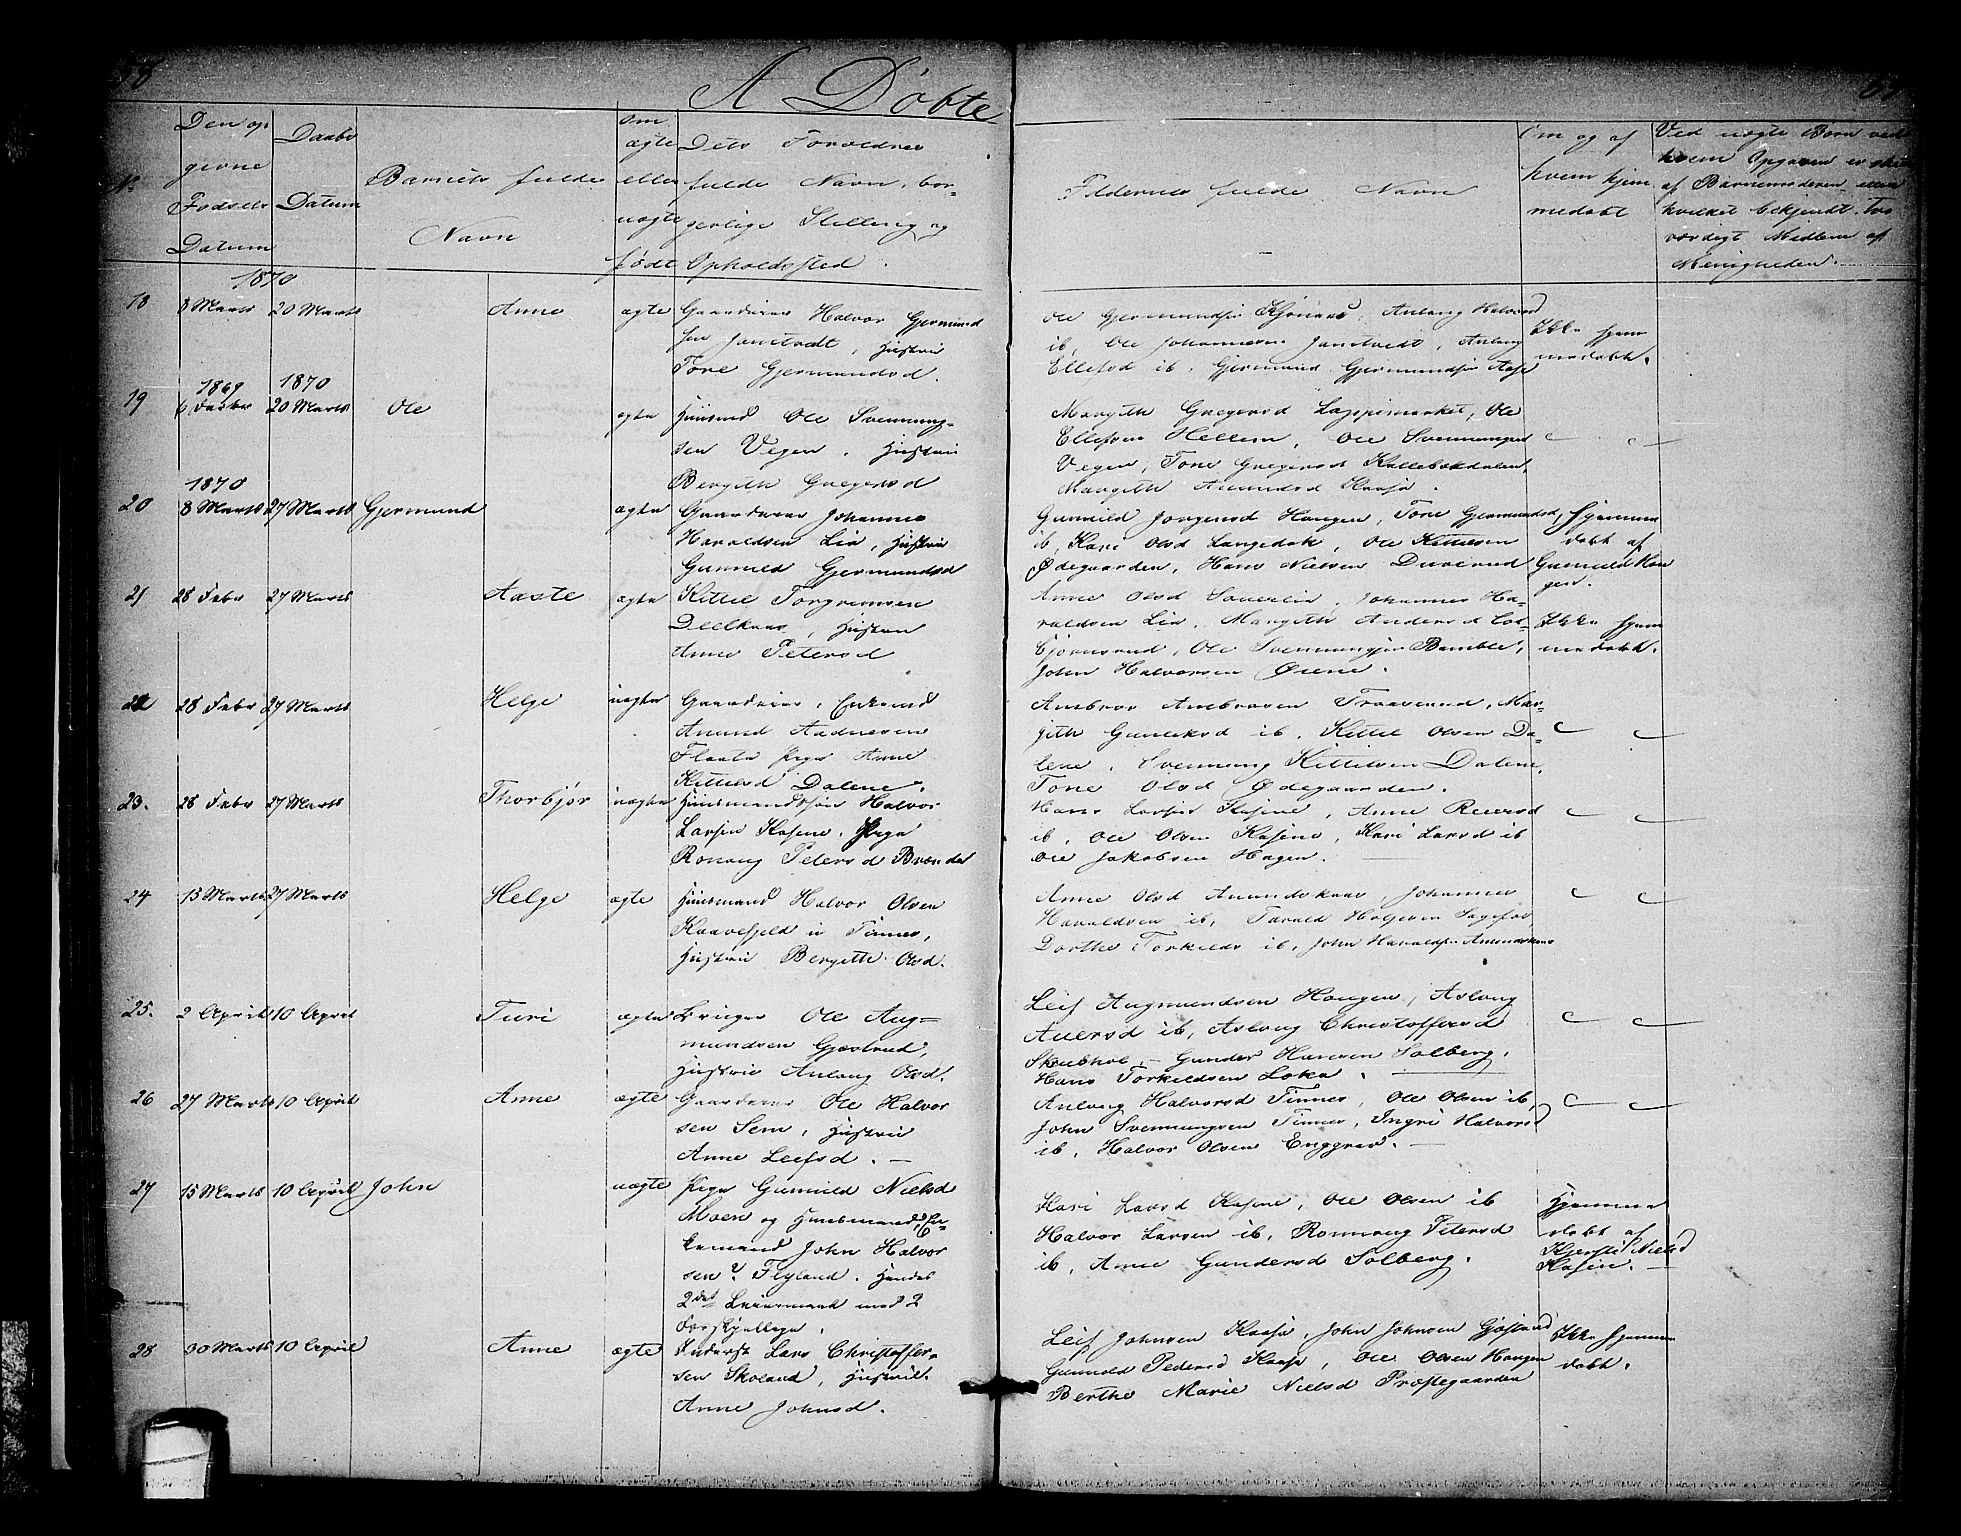 58
A Døbte
No.
Den op
givne
Fødsels
Datum
Daabs
Datum
Barnets fulde
Navn
Om
ægte
eller
uægte
født
Dets Forældres
fulde Navn, bor-
gerlige Stilling og
Opholdssted.
Faddernes fulde Navn
Om og af
hvem hjem
medøbt
Ved uægte Børn ved
hvem Opgaven er skeet
af Barnemoderen eller
hvilket bekjendt, tro
værdigt Medlem af
Menigheden.
1870
18 8 Marts 20 Marts Anne ægte Gaardeier Halvor Gjermund
sen Jamtvedt, Hustru
Tone Gjermundsd.
Ole Gjermundsen, Anlaug Halvorsd
ib, Ole Johannesen Jamtvedt, Anlaug
Ellefsd ib, Gjermund Gjermundsen Aase
Ikke hjem
medøbt.
1869 1870
19 20 Marts Ole ægte Huusmd Ole Svennung-
sen Vegen, Hustru
Bergith Gregersd
Margith Gregersd, Ole
Ellefsen Hellem, Ole Svennungsen
Vegen, Tone Gregersd
Margith Amundsd Kaasa.
1870
20 8 Marts 27 Marts Gjermund ægte Gaardeier Johannes
Haraldsen Lia, Hustru
Gunuld Gjermundsd
Gunuld Jørgensd Haugen, Tone Gjermundsd
ib, Kari Olsd Langedok, Ole Kittilsen
Ødegaarden, Hans Nielsen
Hjemme
døbt af
Gunuld Hau
gen.
21 28 Febr 27 Marts Aaste ægte Kittel Torgrimsen
Deelkaas, Hustru
Anne Petersd
Anne Olsd, Johannes Ha-
raldsen Lia, Margith Andersd
Ole Svennungsen Bamble,
John Halvorsen
Ikke hjem
medøbt.
22 28 Febr 27 Marts Helge uægte Gaardeier, Enkemd
Amund Aadnesen
Flaata Pige Anne
Kittelsd Dalene.
Ambros Ambrosen, Mar-
gith Gunleksd ib, Kittel Olsen Da-
lene, Svennung Kittilsen Dalene,
Tone Olsd Ødegaarden.
23. 28 Febr 27 Marts Thorbjør uægte Huusmandssøn Halvor
Larsen Kasine. Pige
Ronaug Petersd
Hans Larsen Kasine, Anne Reiersd
ib, Ole Olsen Kasine, Kari Larsd ib
Ole Jakobsen Hagen.
24 13 Marts 27 Marts Helge ægte Huusmand Halvor Olsen
Kaavefjeld u Tinnes,
Hustru Bergithe Olsd.
Anne Olsd Amundskaas Johannes
Haraldsen ib, Tarald Helgesen
Dorthe Torkilds ib, John Haraldsen Amundskaas
25. 2 April 10 April Turi ægte Bruger Ole Aug-
mundsen Gjøstrud,
Hustru Anlaug Olsd.
Leif Augmundsen Haugen, Aslaug
ib, Aslaug Christoffersd
Gunder Hansen Solberg,
Hans Torkildsen Loka.
26 27 Marts 10 April Anne ægte Gaardeier Ole Halvor
sen Sem, Hustru
Anne Leifsd.
Anlaug Halvorsd Tinnes, Ole Olsen ib,
John Svennungsen Tinnes, Ingri Halvorsd
ib, Halvor Olsen Enggrav.
27 15 Marts 10 April John uægte Pige Gunuld Nielsd
Moen og Huusmand, En-
kemand John Halvor
sen? Flyland. Hendes
2det Leiermaal med 2
forskjellige.
Kari Larsd Kasine, Ole Olsen ib
Halvor Larsen ib, Ronnaug Petersd
ib, Anne Gundersd Solberg.
Hjemme
døbt af
Kjersti Nielsd
Kasin.
28 30 Marts 10 April Anne ægte Inderst Lars Christoffer-
sen Skoland, Hustru
Anne Johnsd.
Leif Johnsen Kaasa, John Johnsen
Gunuld Pedersd Kaasa, Ole Olsen Haugen
Berthe Marie Nielsd Præstegaarden
Ikke hjemme
døbt.